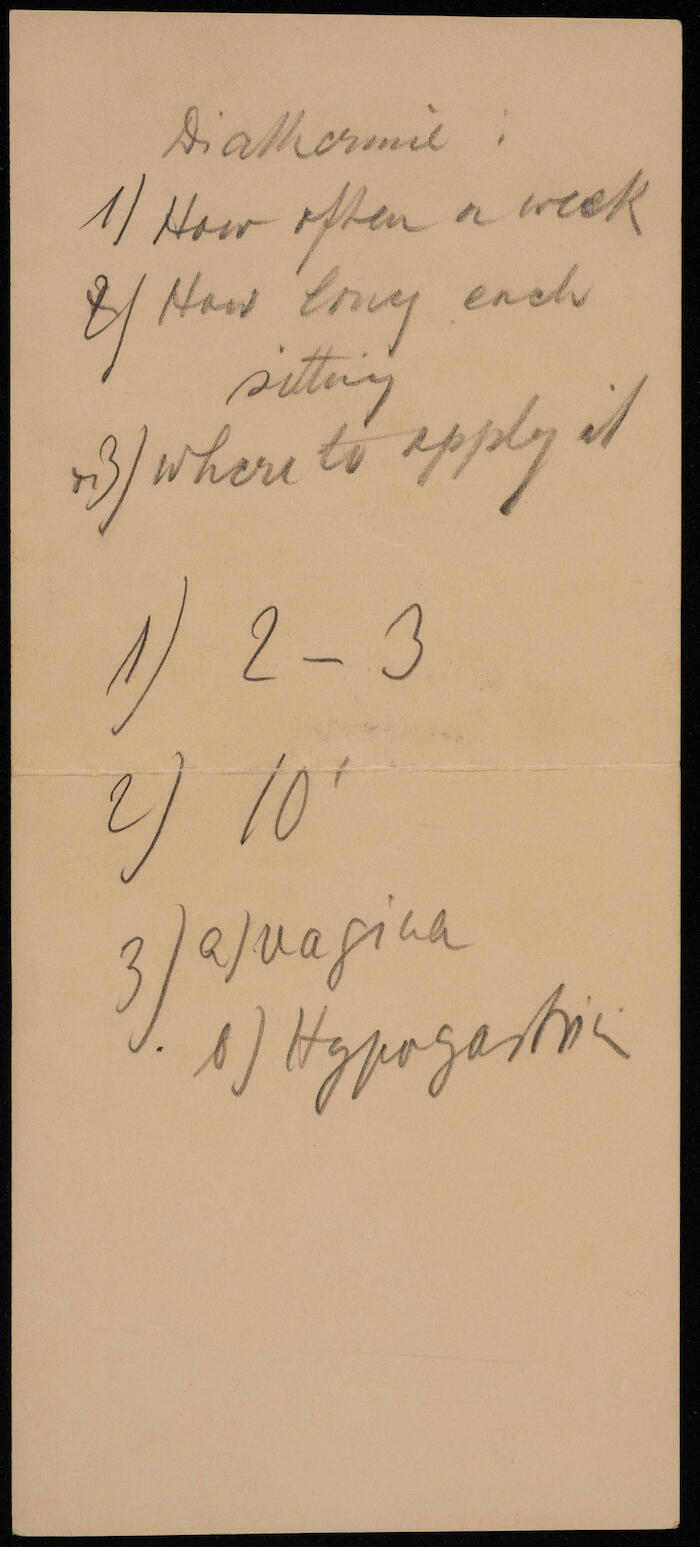 Diathermie :
1) How often a week
2) How long each
sitting
3) where to apply it
1) 2 – 3
2) 10'
3) a) vagina
b)